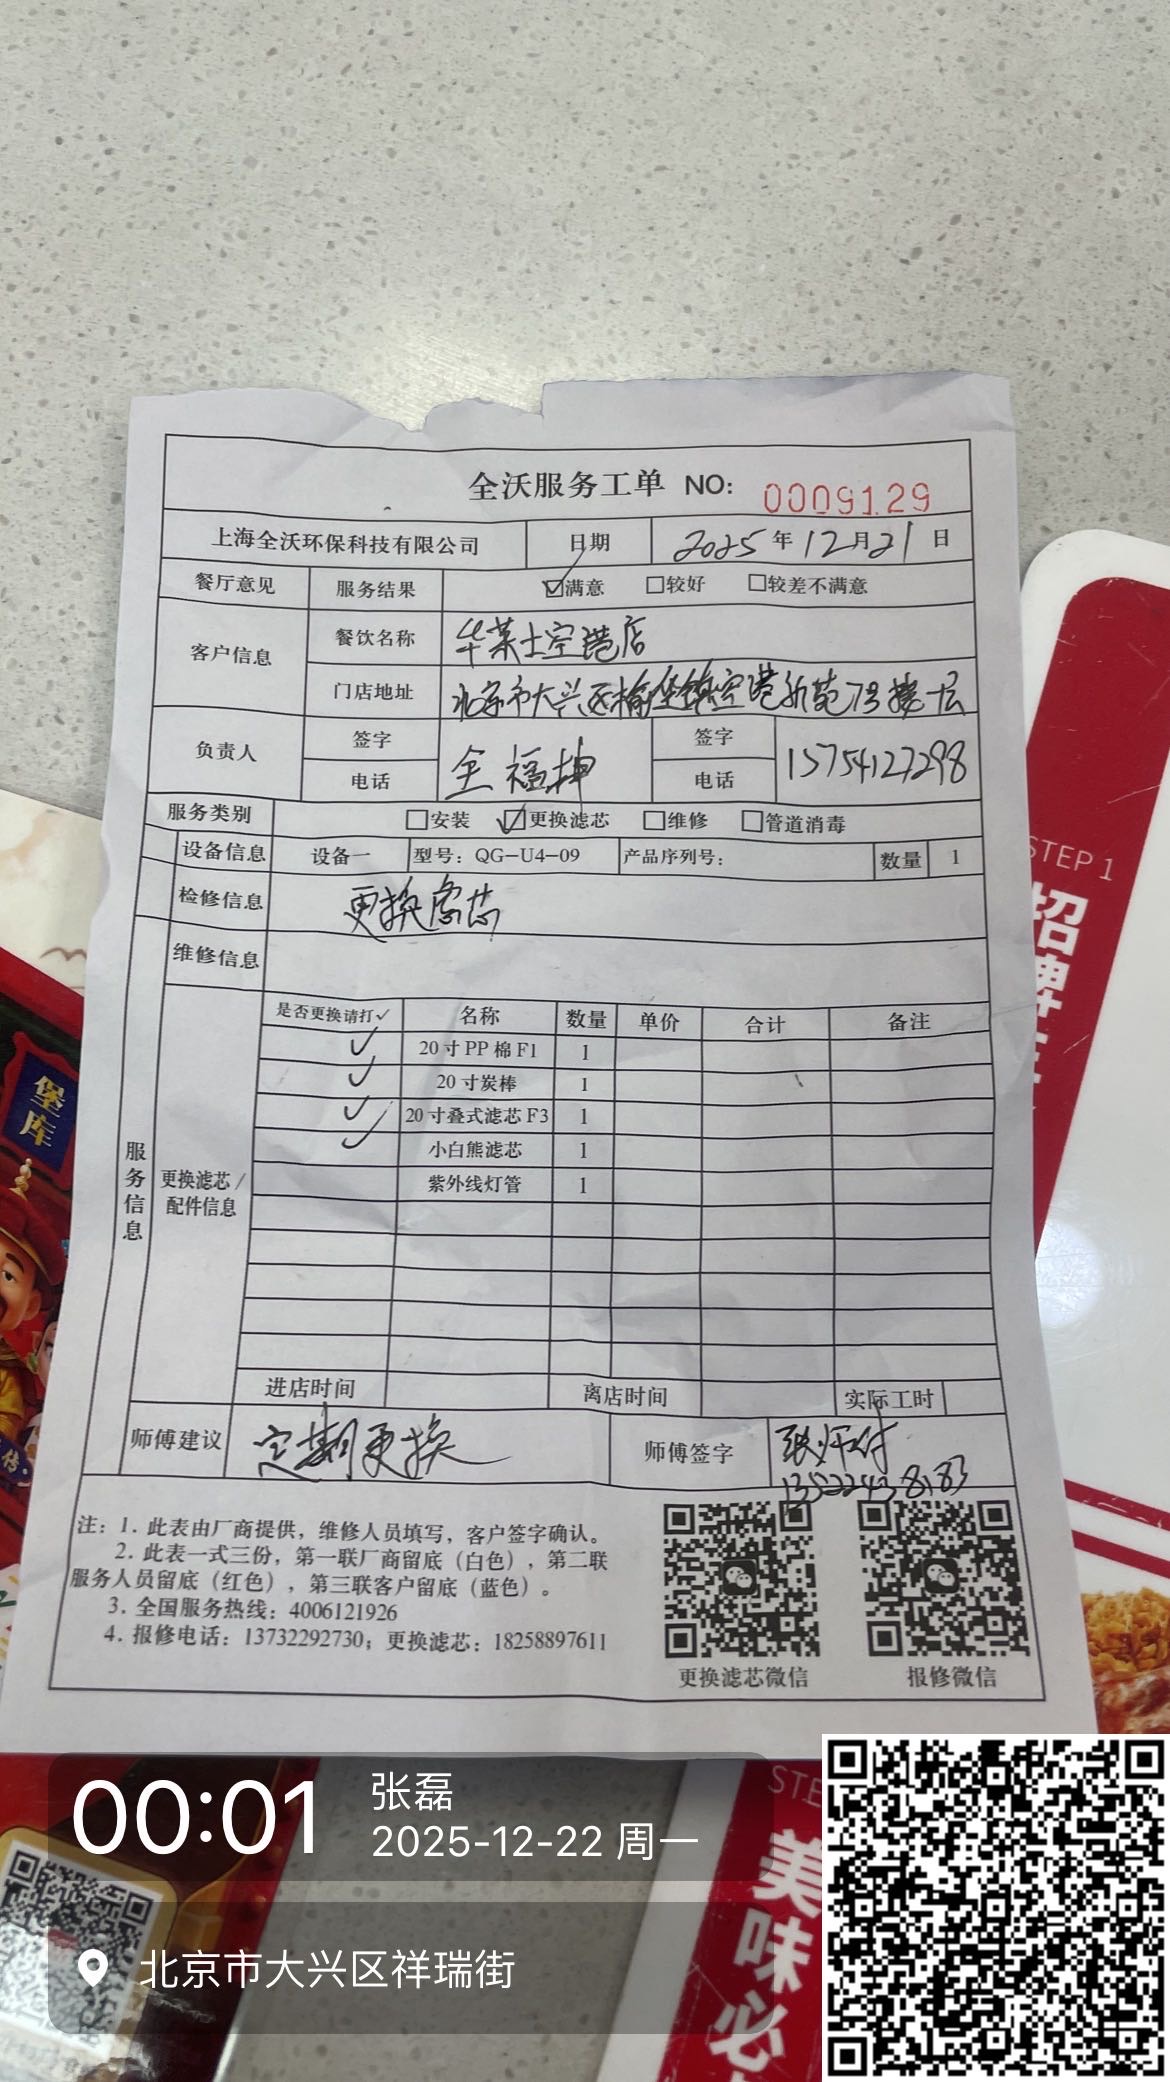 全沃服务工单 NO: 0009129
上海全沃环保科技有限公司 日期 2025年12月21日
餐厅意见 服务结果 ☑满意 □较好 □较差不满意
客户信息 餐饮名称 华莱士空港店
门店地址 北京市大兴区榆垡镇空港新苑7号楼一层
负责人 签字 全福坤 签字
电话 电话 15754127298
服务类别 □安装 ☑更换滤芯 □维修 □管道消毒
设备信息 设备一 型号：QG-U4-09 产品序列号： 数量 1
检修信息 更换滤芯
维修信息
服务信息
更换滤芯/
配件信息
是否更换请打✓ 名称 数量 单价 合计 备注
✓ 20寸PP棉F1 1
✓ 20寸炭棒 1
✓ 20寸叠式滤芯F3 1
✓ 小白熊滤芯 1
紫外线灯管 1
进店时间 离店时间 实际工时
师傅建议 定期更换 师傅签字 张师付
13522438183
注：1. 此表由厂商提供，维修人员填写，客户签字确认。
2. 此表一式三份，第一联厂商留底（白色），第二联
服务人员留底（红色），第三联客户留底（蓝色）。
3. 全国服务热线：4006121926
4. 报修电话：13732292730；更换滤芯：18258897611
更换滤芯微信 报修微信
STEP 1
招牌
堡
库
传
00:01 张磊
2025-12-22 周一
北京市大兴区祥瑞街
STE
美味必